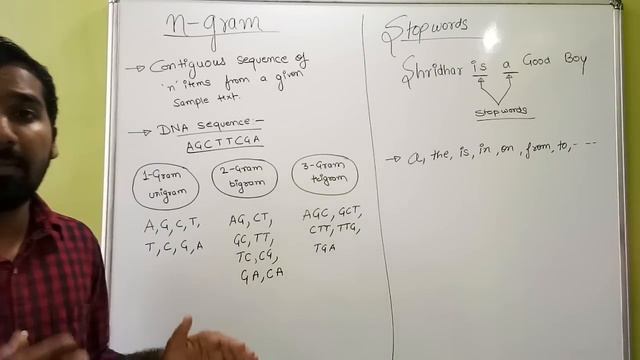 n-gram
→ Contiguous sequence of
'n' items from a given
sample text.
→ DNA sequence:-
AGCTTCGA
1-Gram
unigram
A, G, C, T,
T, C, G, A
2-Gram
bigram
AG, CT,
GC, TT,
TC, CG,
GA, CA
3-Gram
trigram
AGC, GCT,
CTT, TTG,
TGA
Stopwords
Shridhar is a Good Boy
Stopwords
→ a, the, is, in, on, from, to, - --